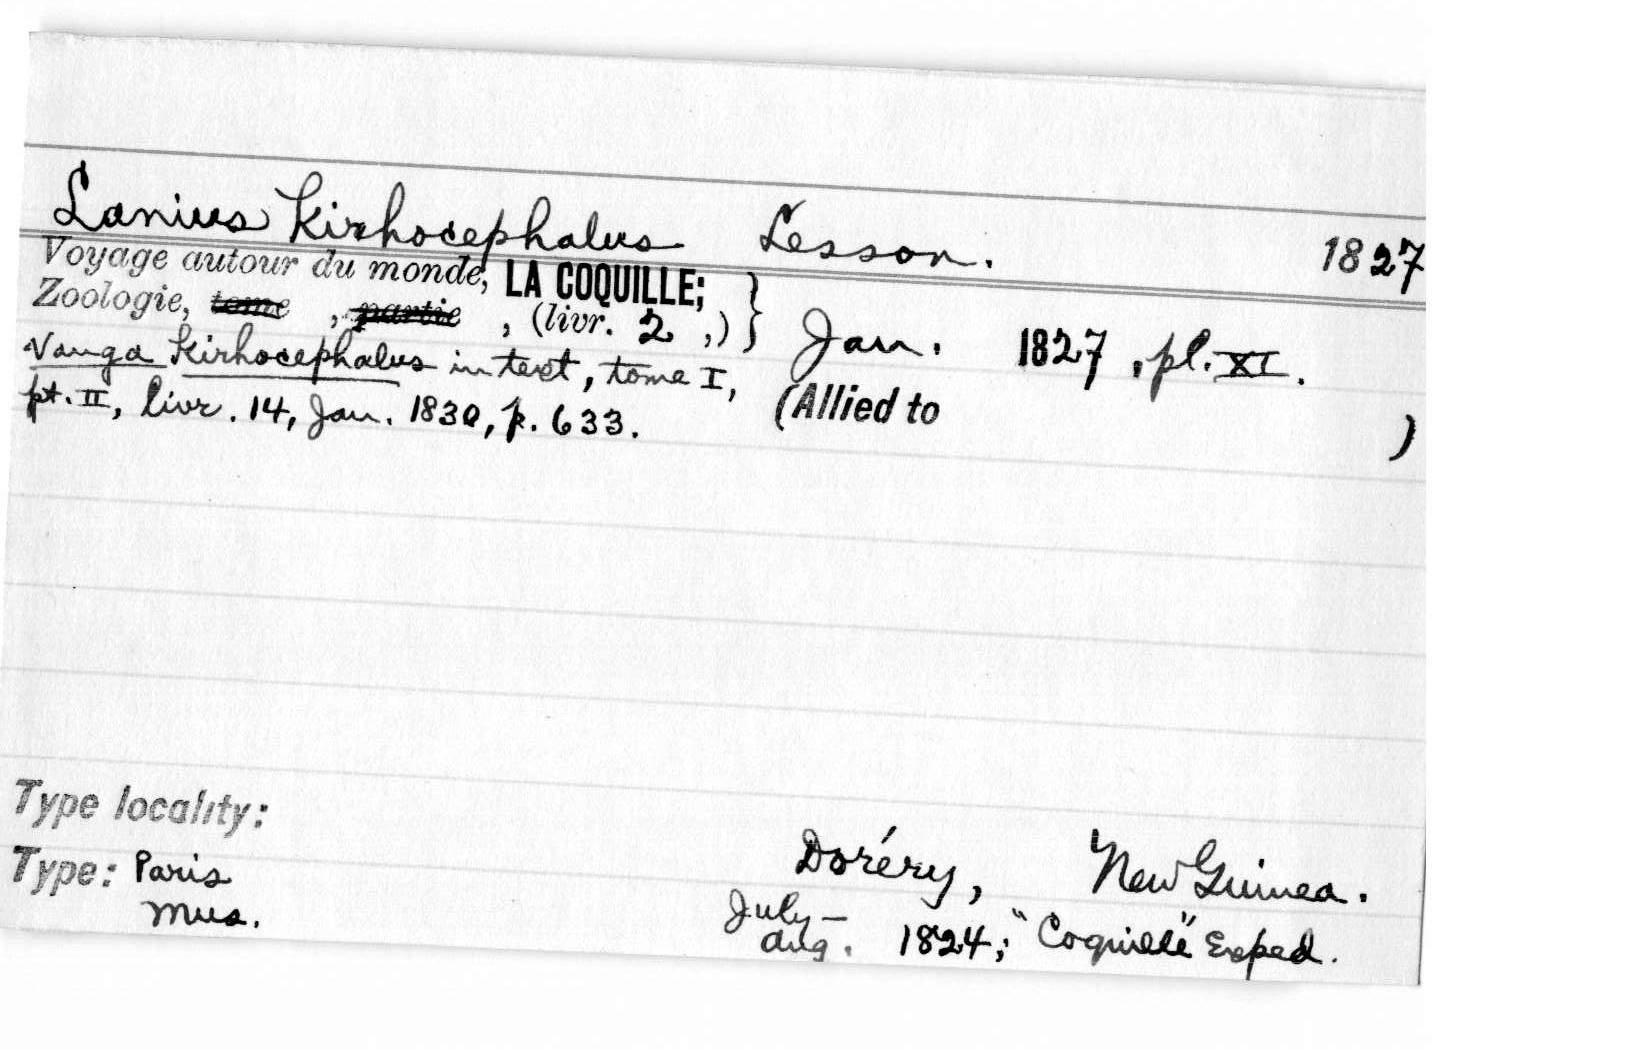 Lanius Kirhocephalus Lesson. 1827
Voyage autour du monde, LA COQUILLE;
Zoologie, tome , partie , (livr. 2 ,) } Jan. 1827, pl. XI.
Vanga Kirhocephalus in text, tome I,
pt. II, livr. 14, Jan. 1830, p. 633. (Allied to )
Type locality:
Doréry, New Guinea.
Type: Paris
Mus.
July–
Aug. 1824; "Coquille" Exped.